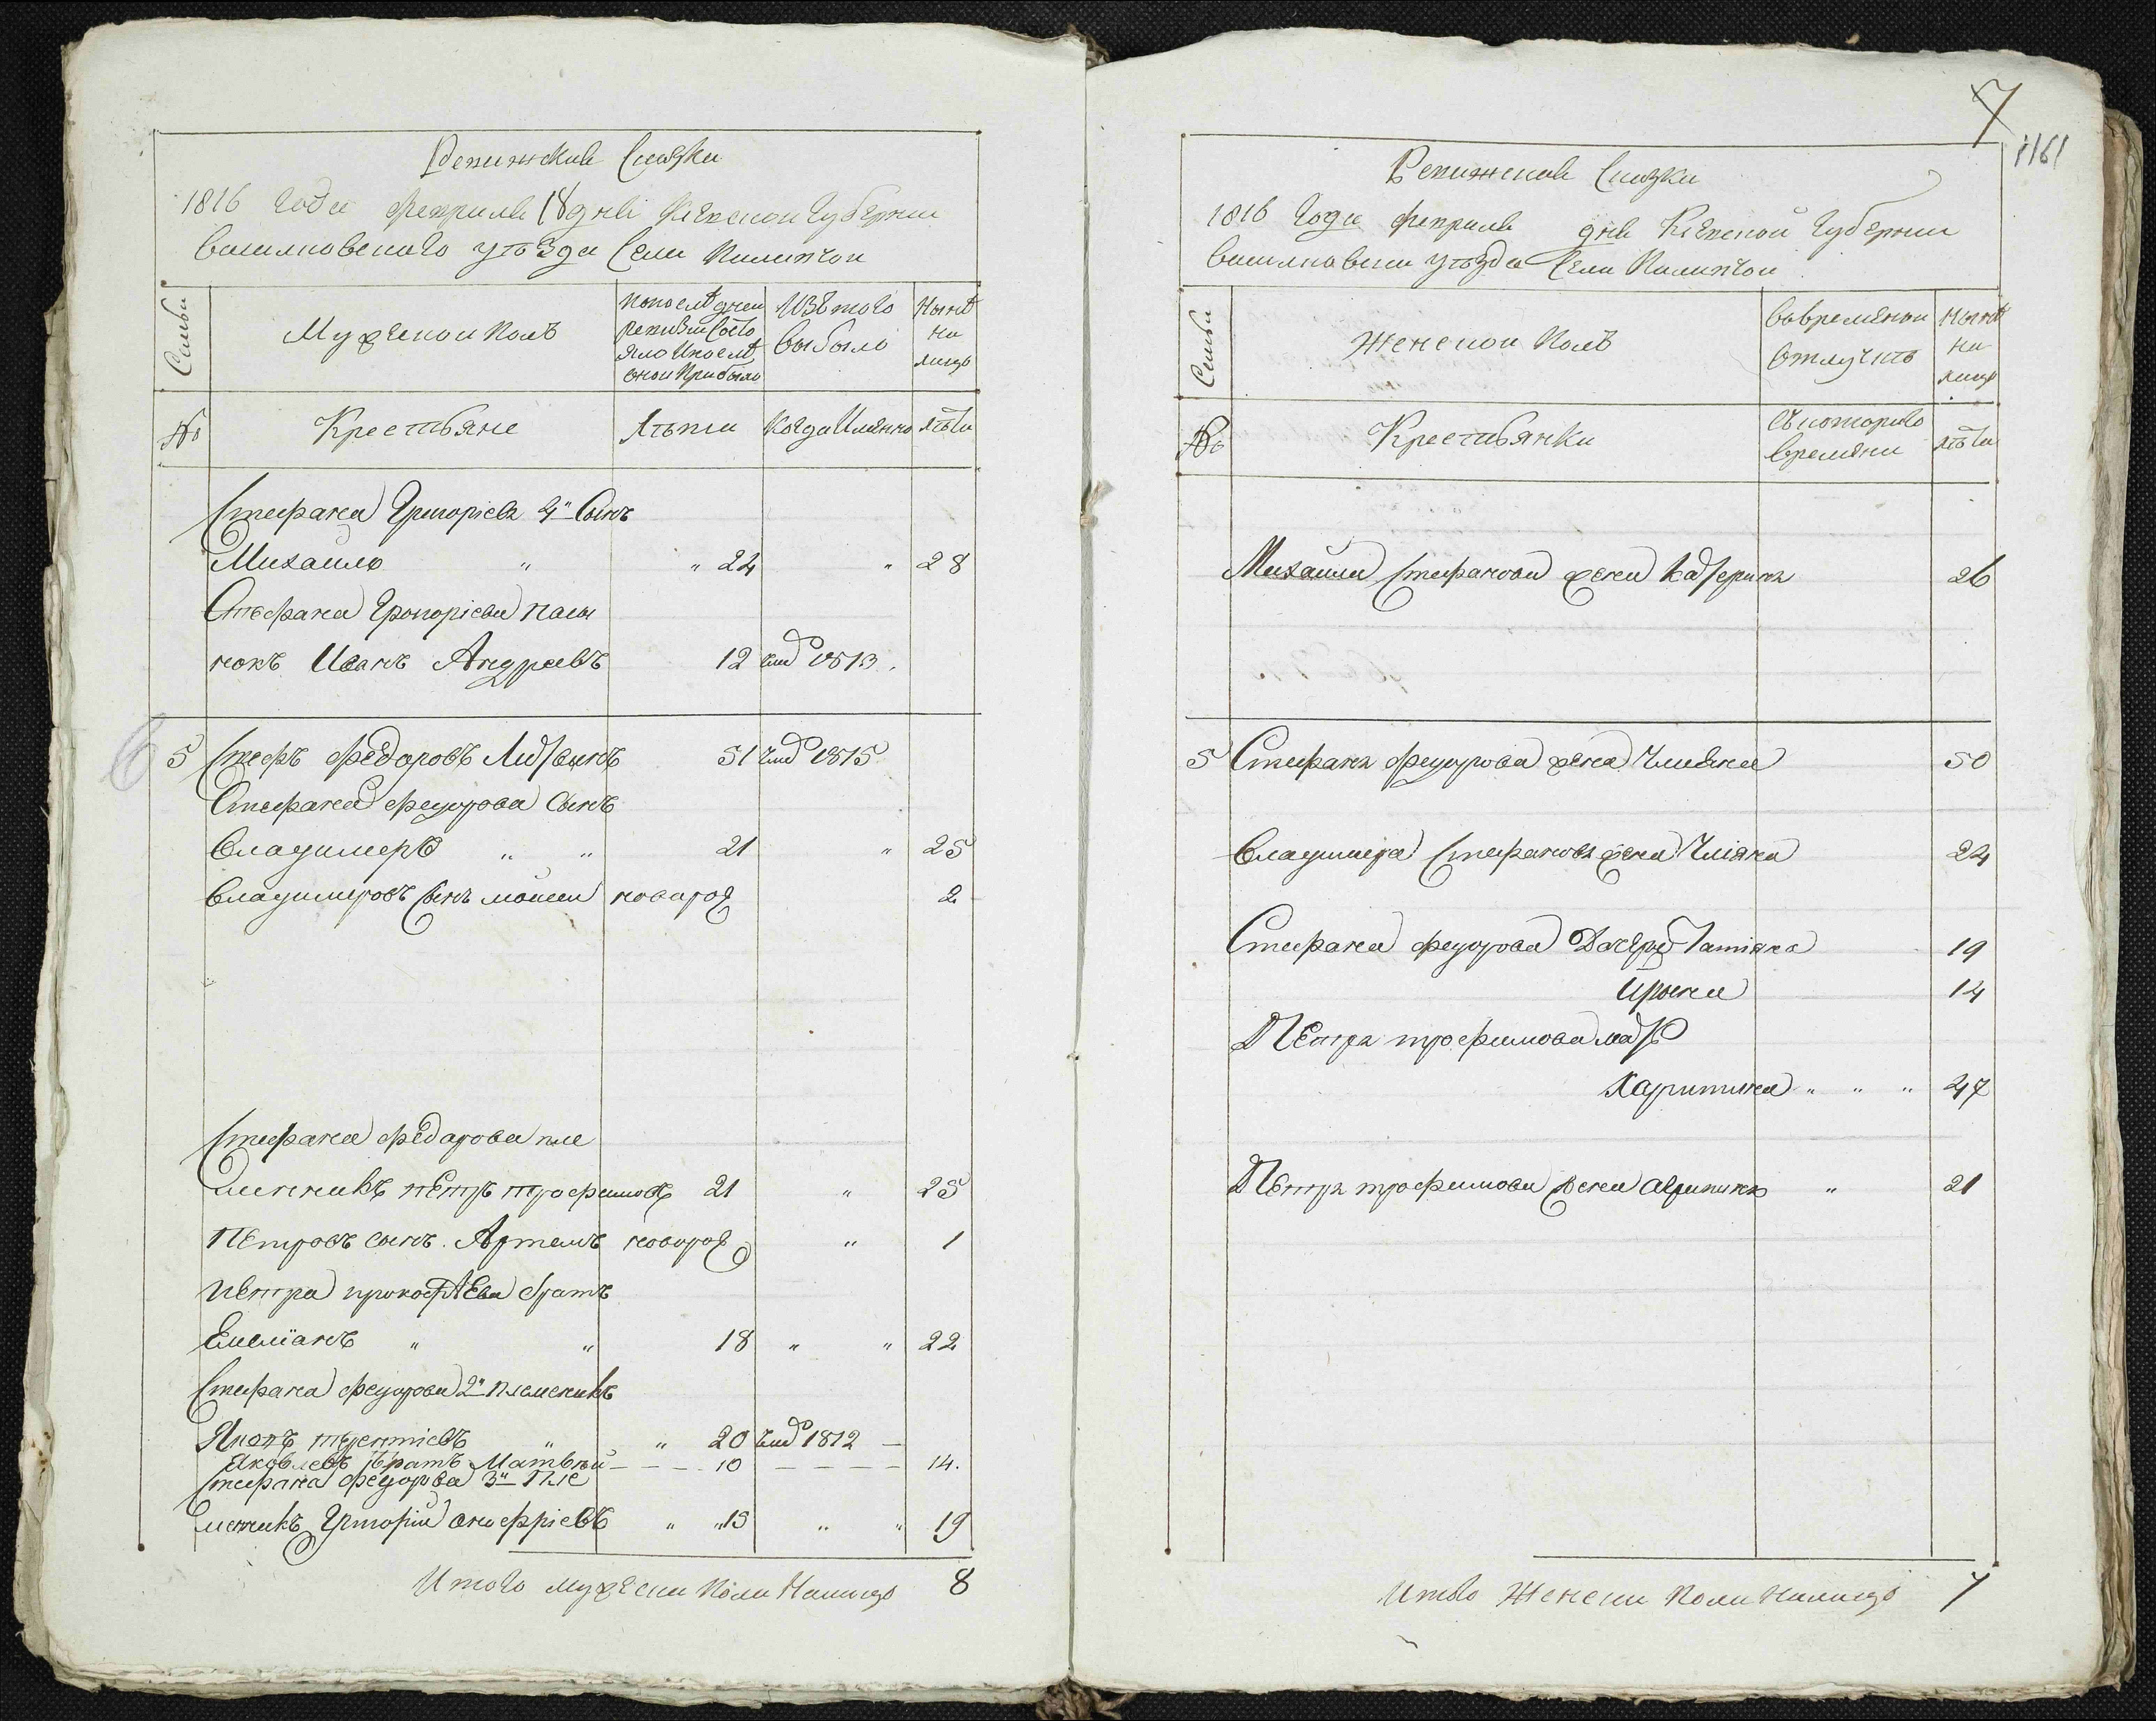 Ревижская Сказка
1816 Года февраля 18 дня Кіевской Губерніи
васильковского уезда Села Пилипчои
Семьи
Мужеской Полъ
попослѣдней
ревизіи Состо
яло Ипослѣ
оной Прибыло
Изътого
выбыло
Нынѣ
на
лицо
№
Крестьяне
Лѣта
Когда Имянно
лѣта
Стефана Григоріева 4й Сынъ
Михайло " " 24 " 28
Стефана Григоріева пасы
нокъ Иванъ Андреевъ 12 1813.
6
5 Стефъ федоровъ 51 1815
Стефана федорова Сынъ
Владимеръ " " 21 " 25
Владимеровъ Сынъ мойсей новорож 2
Стефана федорова пле
менникъ пЕтръ трофимовъ 21 " 25
пЕтровъ сынъ Артемъ новорож " 1
пЕтра братъ
Емеліанъ " " 18 " " 22
Стефана федорова 2й племеникъ
Яковъ терентіевъ " " 20 1812 —
Яковлевъ братъ Матвѣй — — — 10 — — — — 14.
Стефана федорова 3й Пле
меникъ Григорій оноффріевъ " " 15 " " 19
Итого мужеска пола Налицо 8
7
1161
Ревижская Сказка
1816 Года февраля дня Кіевской Губерніи
васильковски уезда Села Пилипчои
Семьи
Женской Полъ
вовремянной
отлучкѣ
Нынѣ
на
лицо
№
Крестьянки
Съкоторого
времяни
лѣта
Михайла Стефанова жена Катерина 26
5 Стефана федорова жена Ульяна 50
Владимера Стефанова жена Уліяна 24
Стефана федорова Дочеры Татіяна 19
Ирына 14
ПЕтра трофимова мать
Харитина " " " 47
ПЕтра трофимова жена " 21
Итого Женска пола налицо 7